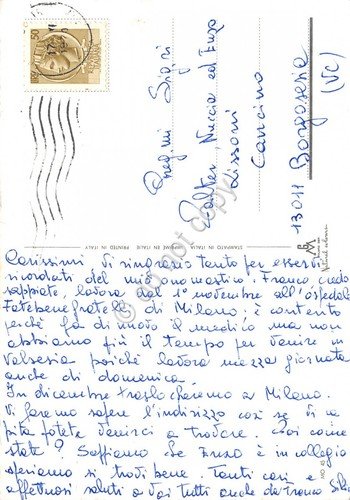 Preg.mi Sig.ri
Valter, Nuccia ed Enzo
Lissoni
Cancino
13011 Borgosesia
(VC)
STAMPATO IN ITALIA - PRINTED IN ITALY
Carissimi vi ringrazio tanto per esservi
ricordati del mio onomastico; Franco, credo
sappiate, lavora dal 1° novembre all'ospedale
Fatebenefratelli di Milano; è contento
perché fa di nuovo il medico ma non
abbiamo più il tempo per venire in
Valsesia poiché lavora mezza giornata
anche di domenica.
In dicembre traslocheremo a Milano.
Vi faremo sapere l'indirizzo così se vi
pita potete venirci a trovare. Voi come
state? Sappiamo che Enzo è in collegio
speriamo si trovi bene. Tanti cari e
affettuosi saluti a voi tutti anche da Franco